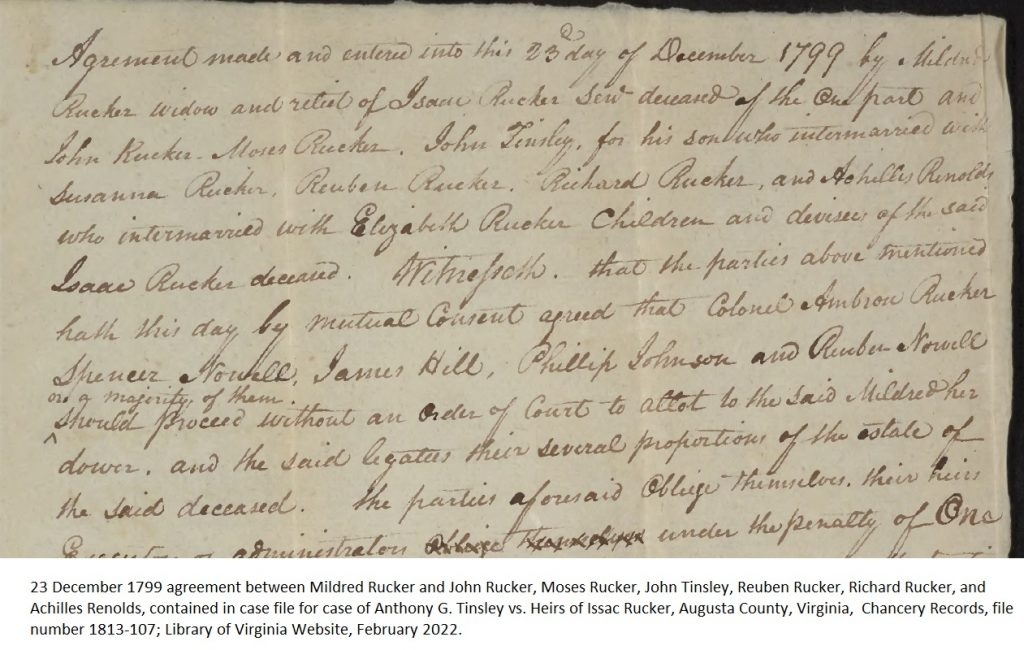 Agrement made and entered into this 23d day of December 1799 by Mildred
Rucker widow and relict of Isaac Rucker Senr deceased of the One part and
John Rucker. Moses Rucker. John Tinsley, for his son who intermarried with
Susanna Rucker, Reuben Rucker. Richard Rucker, and Achilles Renolds
who intermarried with Elizabeth Rucker Children and devisees of the said
Isaac Rucker deceased. Witnesseth. that the parties above mentioned
hath this day by mutual Consent agreed that Colonel Ambrou Rucker
Spencer Nowell, James Hill, Phillip Johnson and Reuben Nowell
or a majority of them
should proceed without an Order of Court to allot to the said Mildred her
dower. and the said legatees their several proportions of the estate of
the said deceased. the parties aforesaid Obliege themselves. their heirs
Executors or administrators under the penalty of One
23 December 1799 agreement between Mildred Rucker and John Rucker, Moses Rucker, John Tinsley, Reuben Rucker, Richard Rucker, and
Achilles Renolds, contained in case file for case of Anthony G. Tinsley vs. Heirs of Issac Rucker, Augusta County, Virginia, Chancery Records, file
number 1813-107; Library of Virginia Website, February 2022.